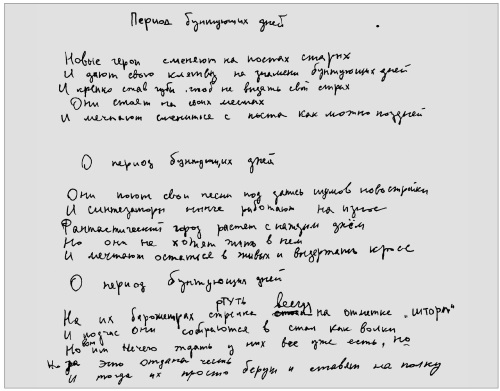 Период бунтующих дней
Новые герои сменяют на постах старых
И дают свою клятву на знамени бунтующих дней
И крепко сжав губы чтоб не выдать свой страх
Они стоят на своих местах
И мечтают смениться с поста как можно поздней
О период бунтующих дней
Они поют свои песни под запись шумов новостройки
И синтезаторы нынче работают на износ
Фантастический город растет с каждым днём
Но они не хотят жить в нем
И мечтают остаться в живых и выдержать кросс
О период бунтующих дней
На их барометрах стрелка всегда на отметке "шторм"
ртуть
И подчас они собираются в стаи как волки
Но им нечего ждать у них все уже есть, но
за это отдана честь
И тогда их просто беруи и ставят на полку